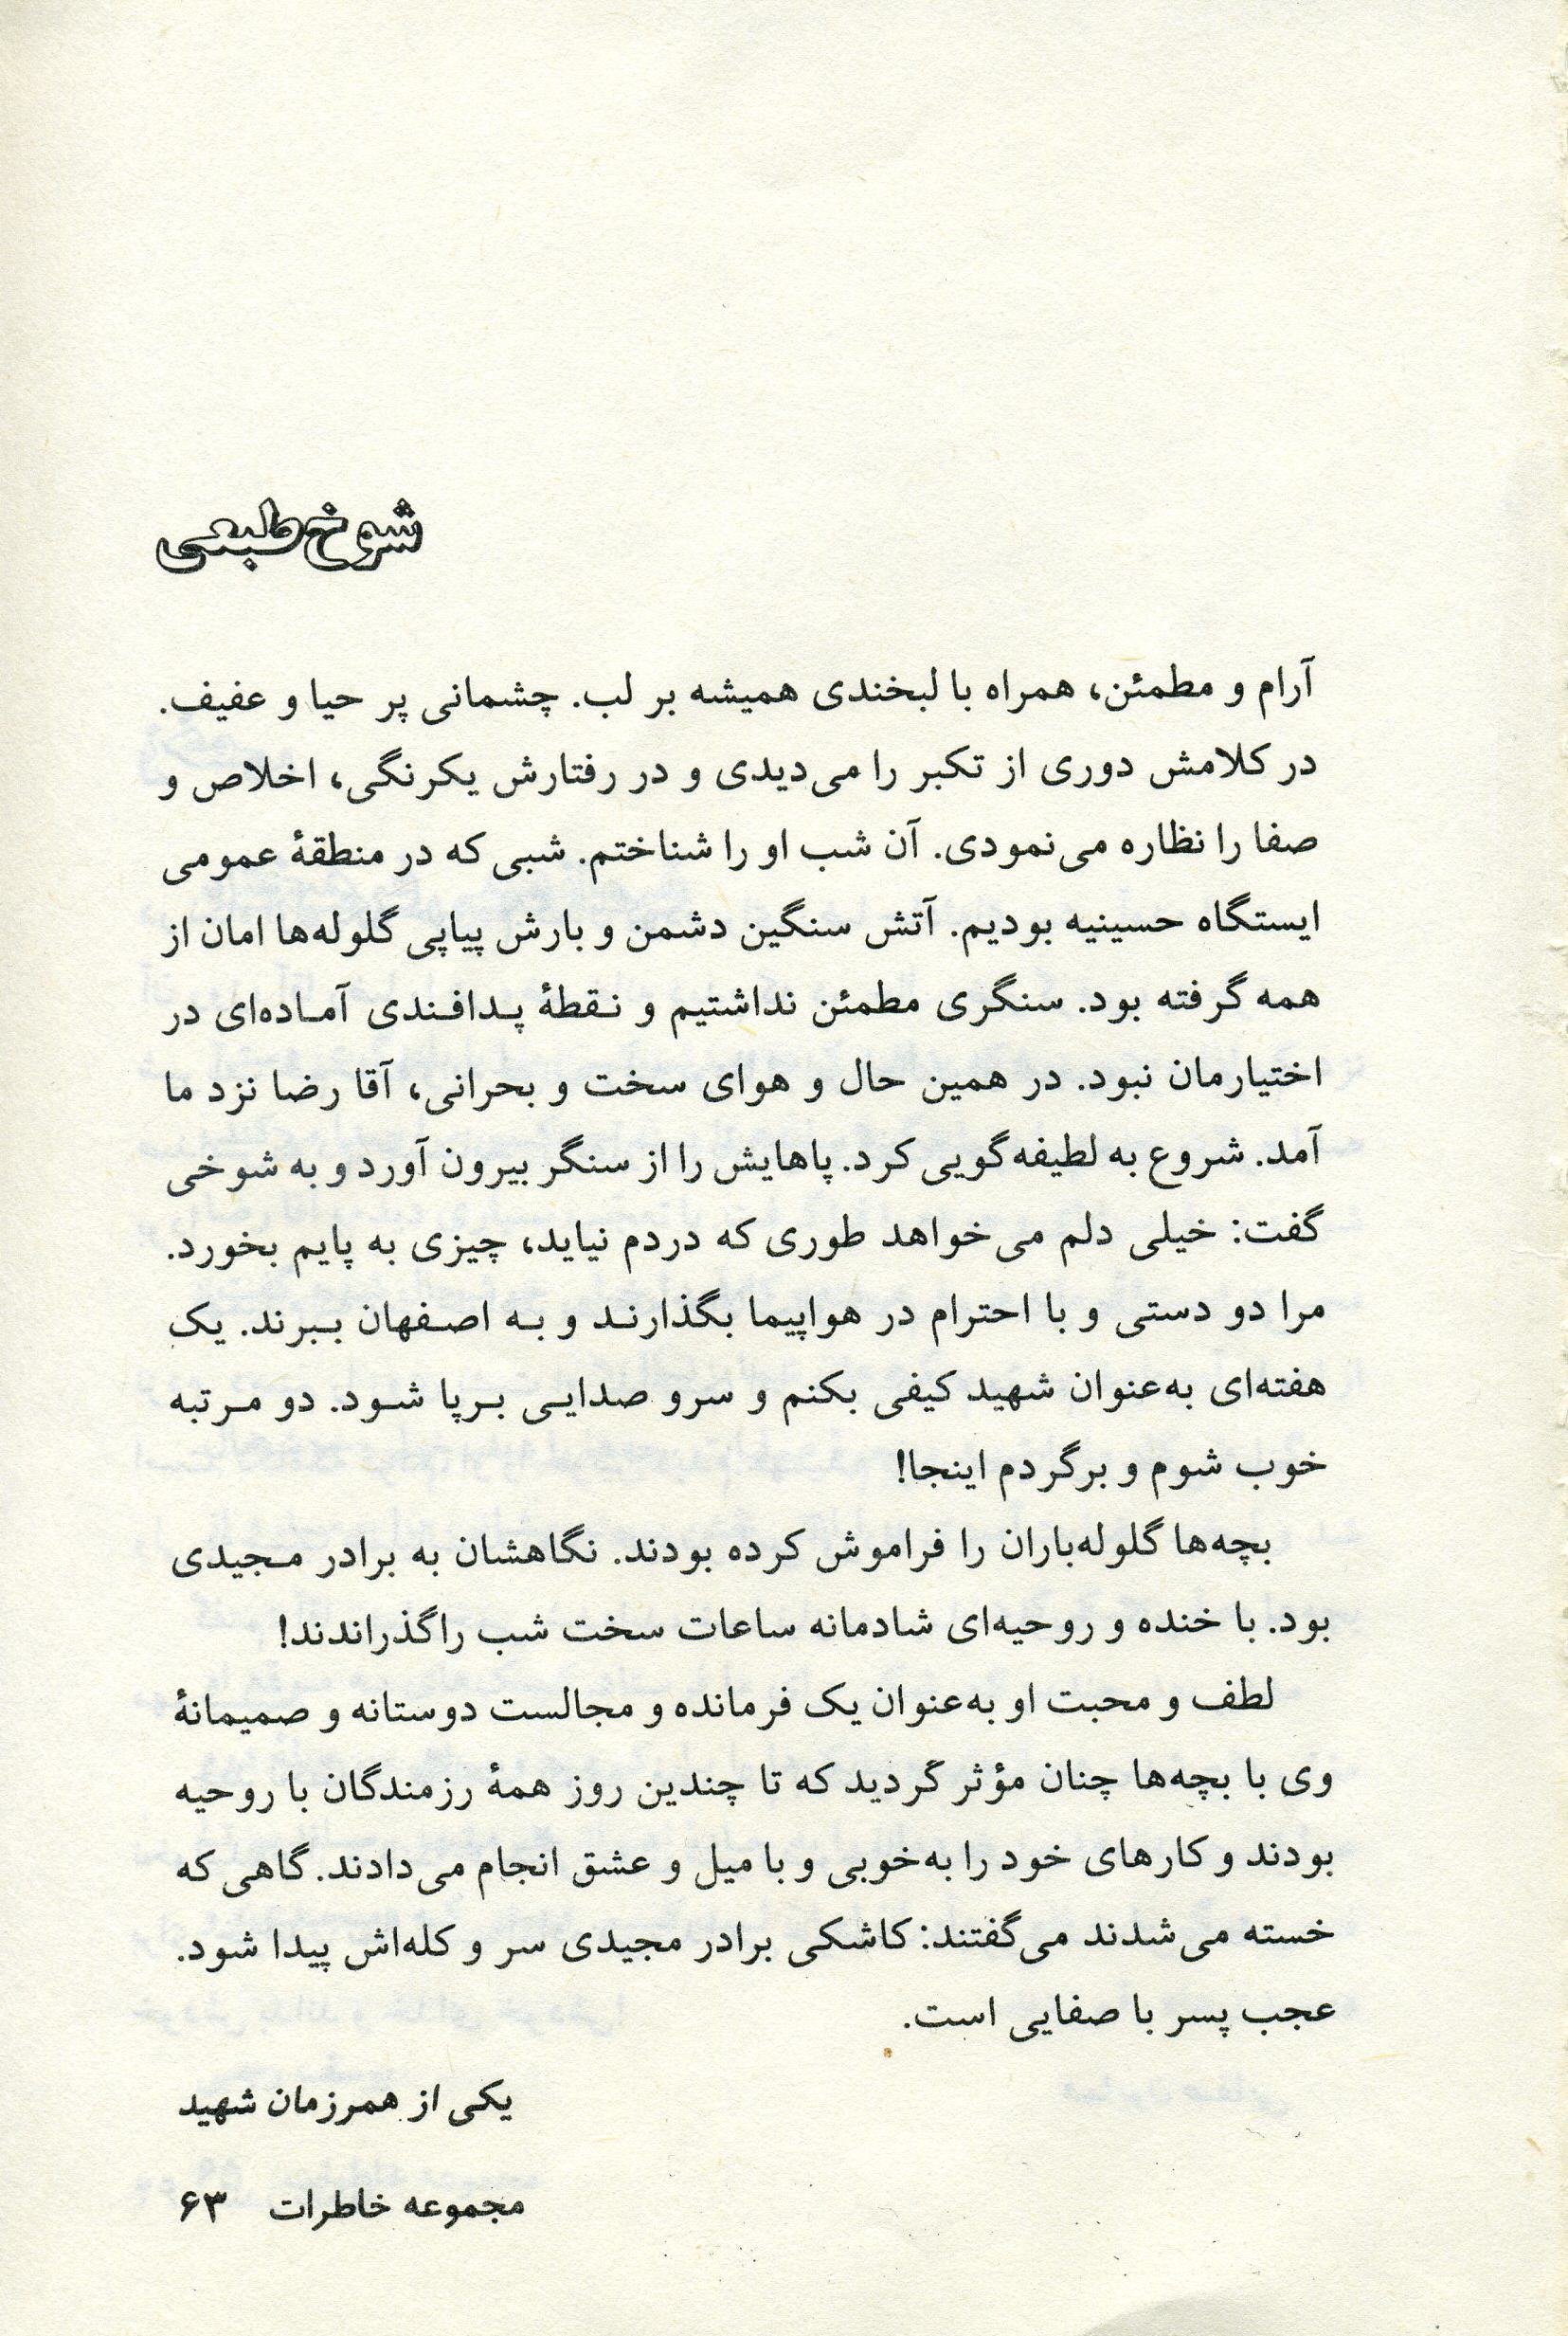 شوخ‌طبعی
آرام و مطمئن، همراه با لبخندی همیشه بر لب. چشمانی پر حیا و عفیف.
در کلامش دوری از تکبر را می‌دیدی و در رفتارش یکرنگی، اخلاص و
صفا را نظاره می‌نمودی. آن شب او را شناختم. شبی که در منطقهٔ عمومی
ایستگاه حسینیه بودیم. آتش سنگین دشمن و بارش پیاپی گلوله‌ها امان از
همه گرفته بود. سنگری مطمئن نداشتیم و نقطهٔ پدافندی آماده‌ای در
اختیارمان نبود. در همین حال و هوای سخت و بحرانی، آقا رضا نزد ما
آمد. شروع به لطیفه‌گویی کرد. پاهایش را از سنگر بیرون آورد و به شوخی
گفت: خیلی دلم می‌خواهد طوری که دردم نیاید، چیزی به پایم بخورد.
مرا دو دستی و با احترام در هواپیما بگذارند و به اصفهان ببرند. یک
هفته‌ای به‌عنوان شهید کیفی بکنم و سرو صدایی برپا شود. دو مرتبه
خوب شوم و برگردم اینجا!
بچه‌ها گلوله‌باران را فراموش کرده بودند. نگاهشان به برادر مجیدی
بود. با خنده و روحیه‌ای شادمانه ساعات سخت شب را گذراندند!
لطف و محبت او به‌عنوان یک فرمانده و مجالست دوستانه و صمیمانهٔ
وی با بچه‌ها چنان مؤثر گردید که تا چندین روز همهٔ رزمندگان با روحیه
بودند و کارهای خود را به‌خوبی و با میل و عشق انجام می‌دادند. گاهی که
خسته می‌شدند می‌گفتند: کاشکی برادر مجیدی سر و کله‌اش پیدا شود.
عجب پسر با صفایی است.
یکی از همرزمان شهید
مجموعه خاطرات ۶۳